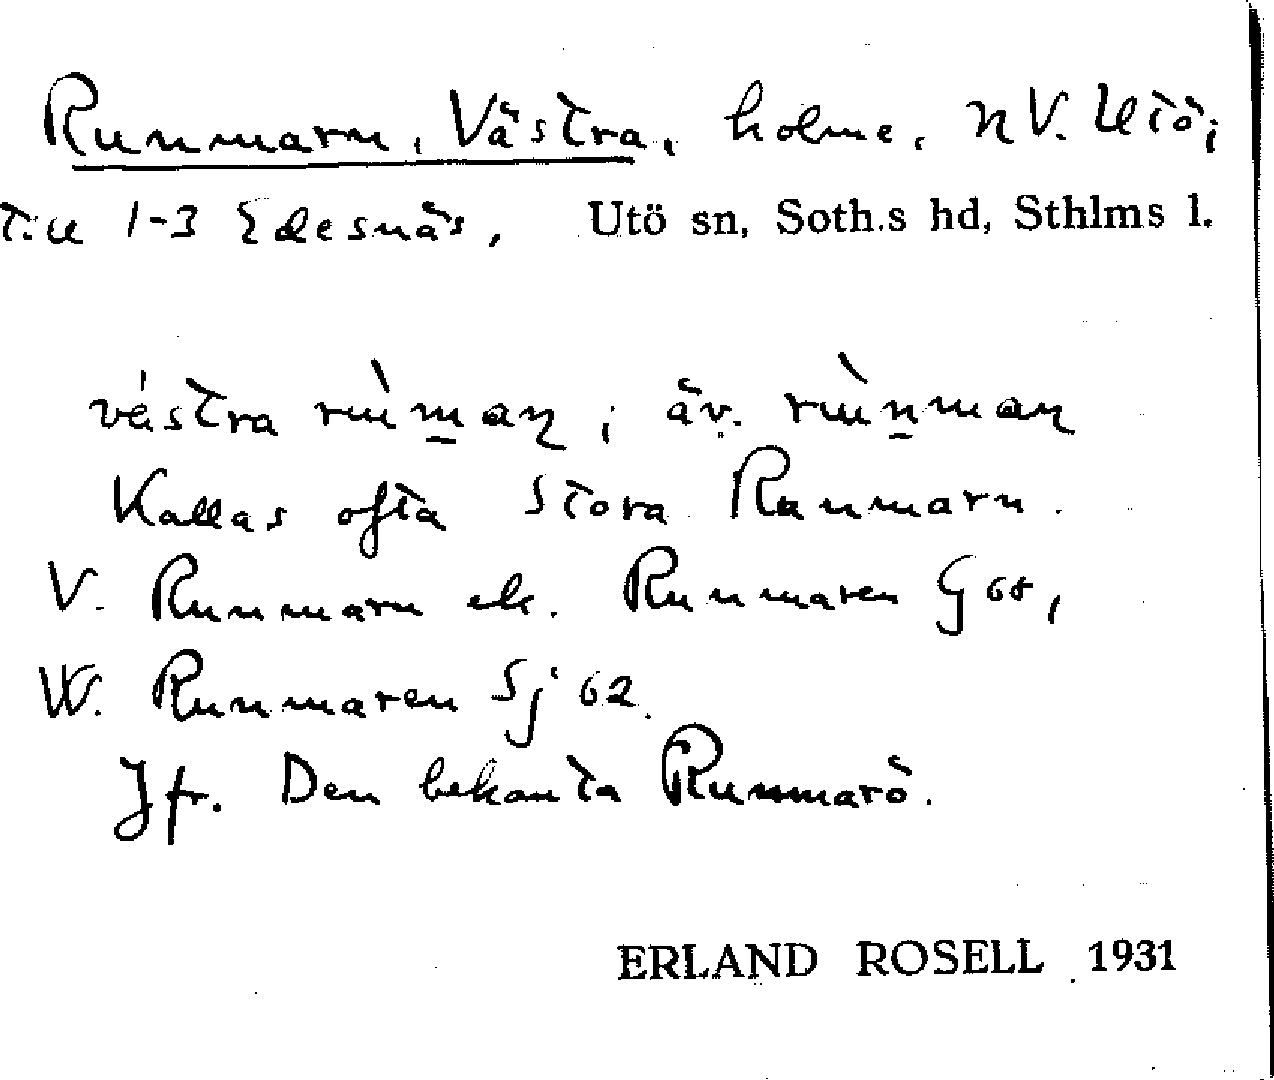 Runmarn, Västra, holme, NV. Utö;
till 1-3 Edesnäs, Utö sn, Soth.s hd, Sthlms l.
västra rùm̲an; äv. rùn̲man
Kallas ofta Stora Runmarn.
V. Runmarn el. Runmaren G 68,
W. Runmaren Sj 62.
Jfr. Den bekanta Runmarö.
ERLAND ROSELL 1931